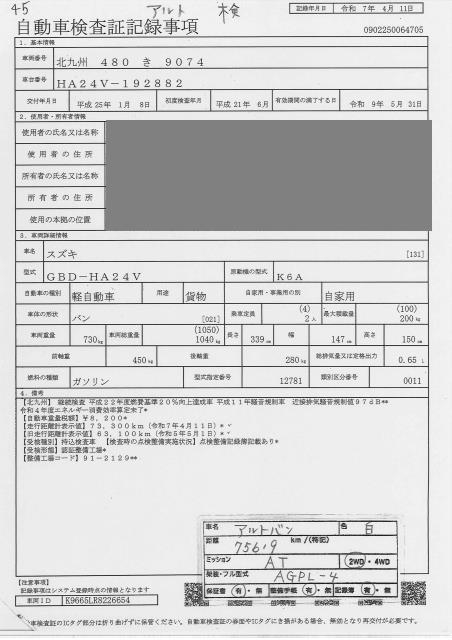 45 アルト 検
記録年月日 令和 7年 4月 11日
自動車検査証記録事項
0902250064705
1. 基本情報
車両番号 北九州 480 き 9074
車台番号 HA24V-192882
交付年月日 平成25年 1月 8日 初度検査年月 平成21年 6月 有効期間の満了する日 令和 9年 5月 31日
2. 使用者・所有者情報
使用者の氏名又は名称
使用者の住所
所有者の氏名又は名称
所有者の住所
使用の本拠の位置
3. 車両詳細情報
車名 スズキ [131]
型式 GBD-HA24V 原動機の型式 K6A
自動車の種別 軽自動車 用途 貨物 自家用・事業用の別 自家用
車体の形状 バン [021] 乗車定員 (4) 2人 最大積載量 (100) 200kg
車両重量 730kg 車両総重量 (1050) 1040kg 長さ 339cm 幅 147cm 高さ 150cm
前軸重 450kg 後軸重 280kg 総排気量又は定格出力 0.65 l
燃料の種類 ガソリン 型式指定番号 12781 類別区分番号 0011
4. 備考
【北九州】 継続検査 平成22年度燃費基準20%向上達成車 平成11年騒音規制車 近接排気騒音規制値97dB**
令和4年度エネルギー消費効率算定未了*
【自動車重量税額】¥8,200*
【走行距離計表示値】73,300km(令和7年4月11日)*
【旧走行距離計表示値】63,100km(令和5年5月1日)*
【受検種別】持込検査車 【検査時の点検整備実施状況】点検整備記録簿記載あり*
【受検形態】認証整備工場*
【整備工場コード】91-2129**
車名 アルトバン 色 白
距離 75619 km/(特記)
ミッション AT 2WD・4WD
架装・フル型式 AGPL-4
保証書 有・無 整備手帳 有・無 記録簿 有・無
【注意事項】
記録事項はシステム登録時点の情報となります
車両ID K9665LR8226654
車検査証のICタグ部分は折り曲げずに保管ください。自動車検査証の券面やICタグに き損がある場合、無効となり再交付が必要です。